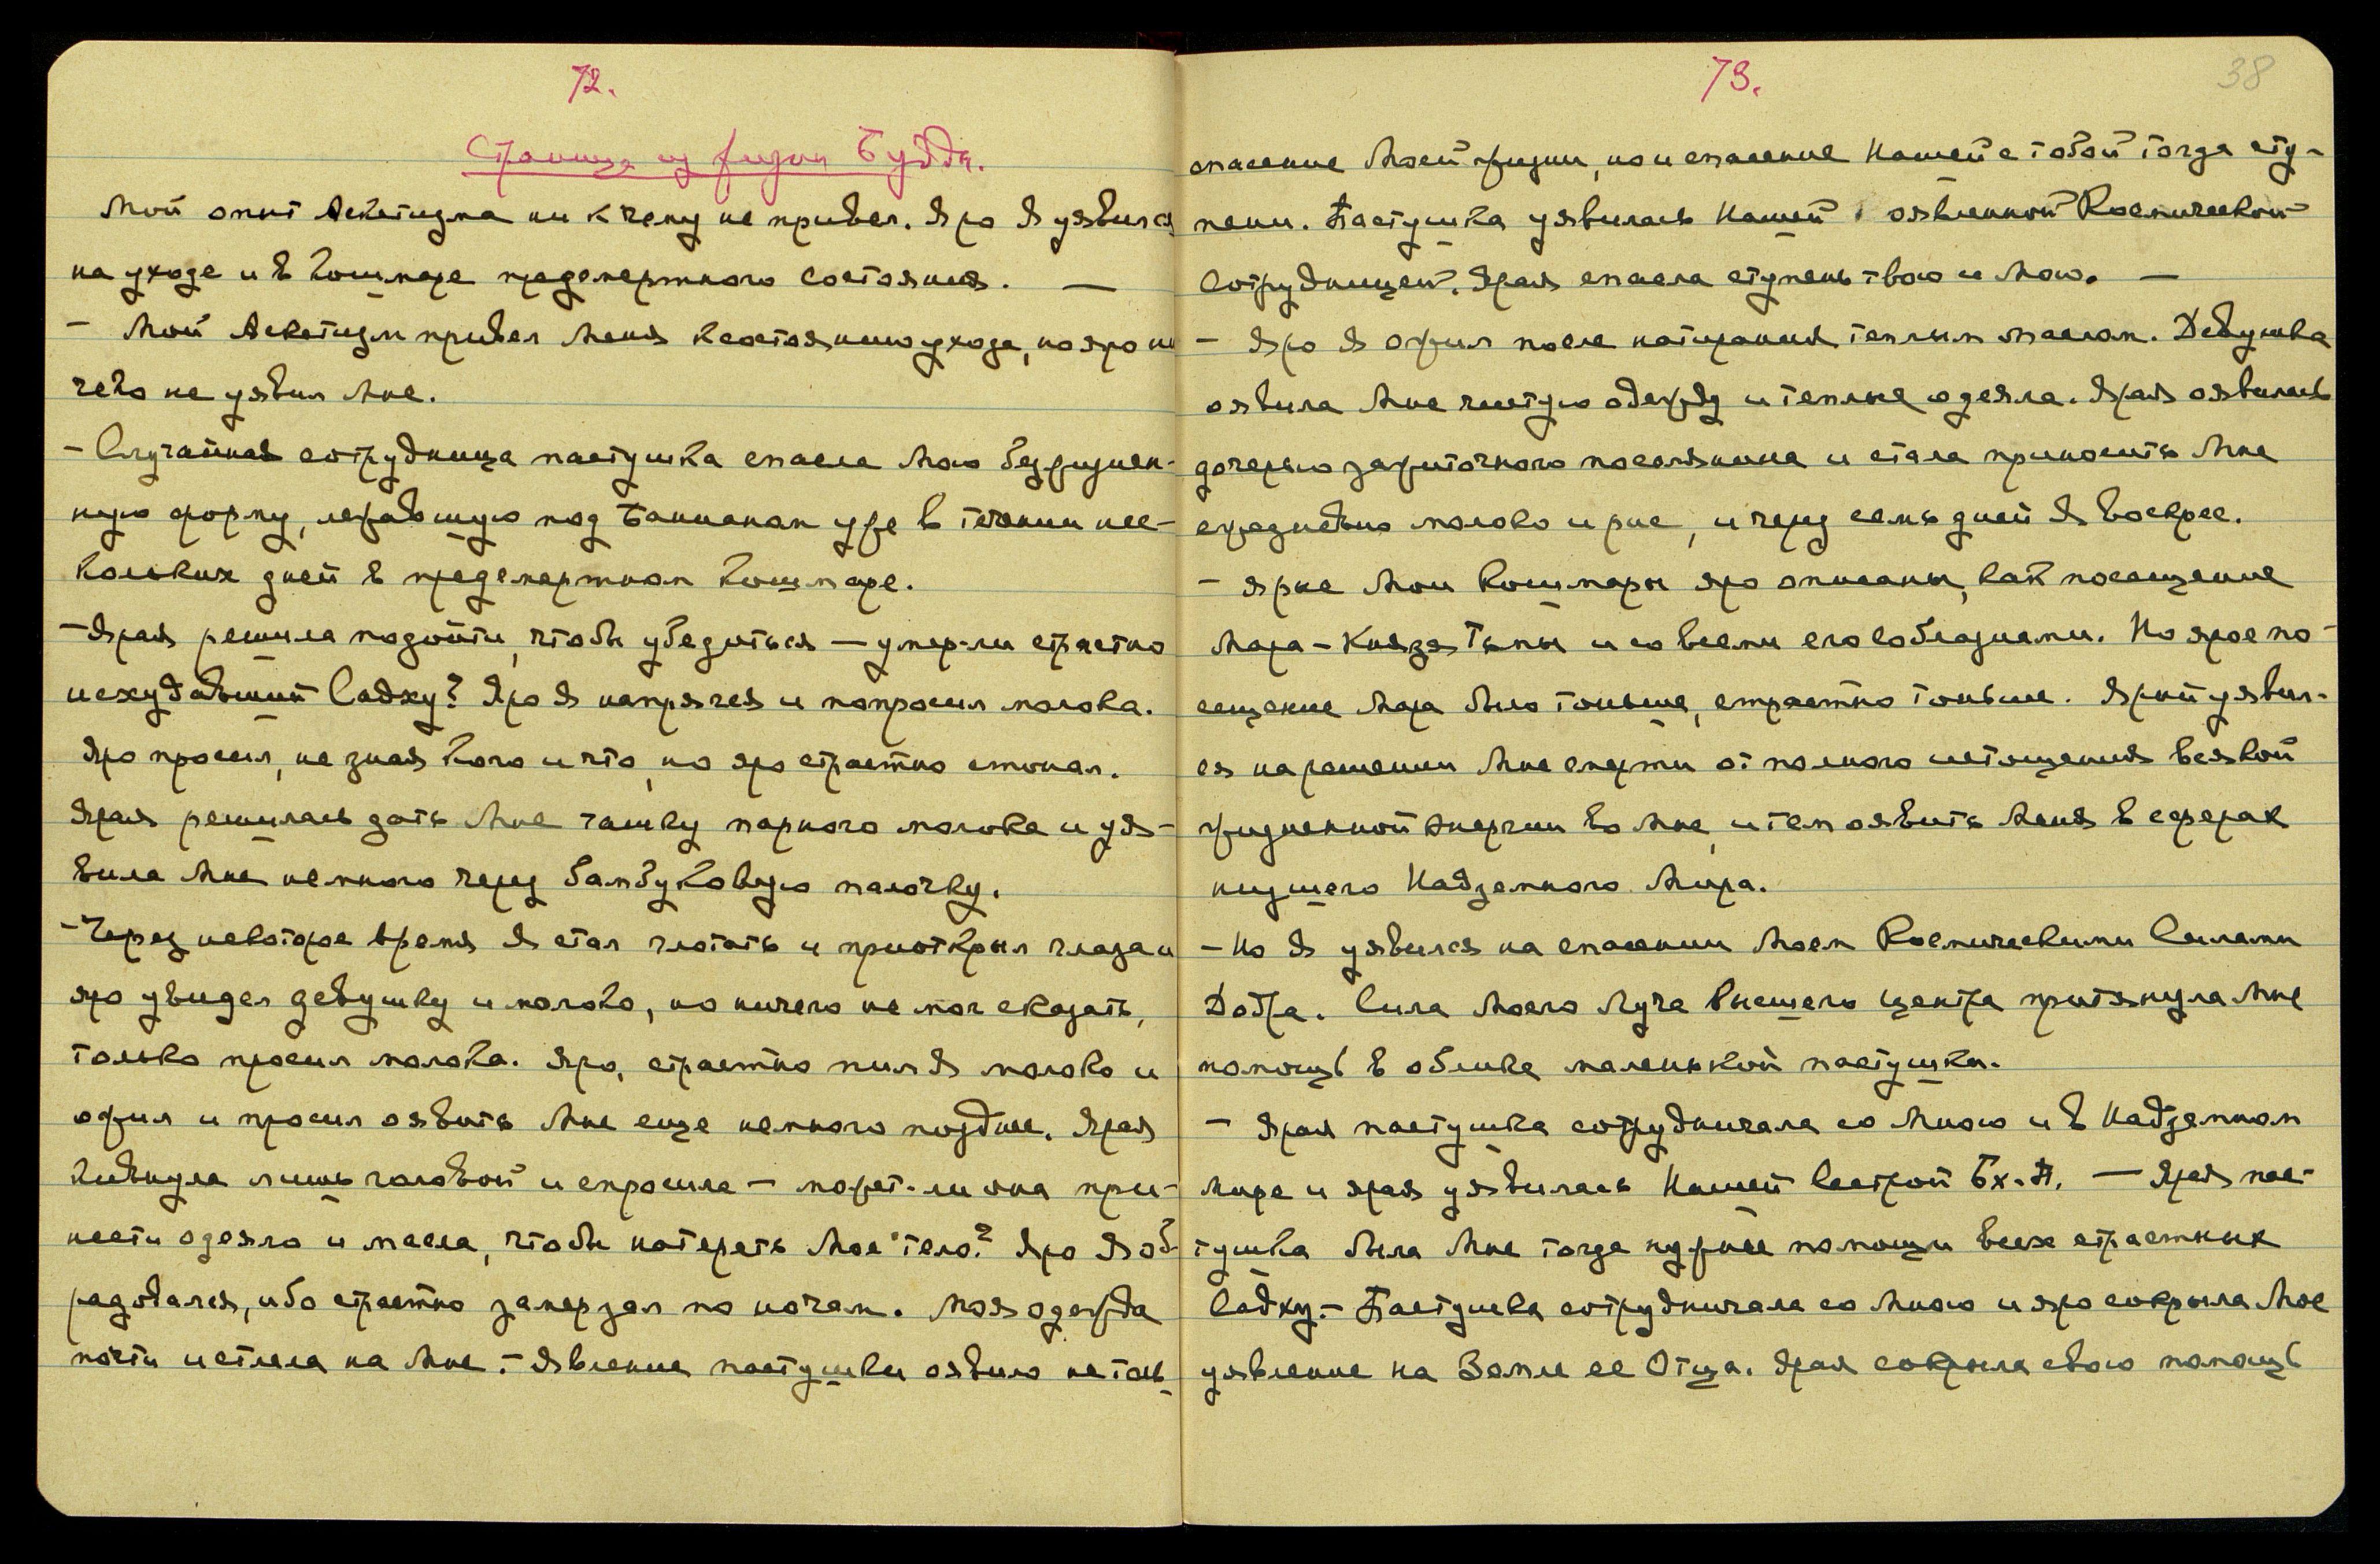 72.
Страница из жизни Будды.
Мой опыт Аскетизма ни к чему не привел. Яро Я уявился
на уходе и в кошмаре предсмертного состояния. —
— Мой Аскетизм привел Меня к состоянию ухода, но яро ни
чего не уявил Мне.
— Случайная сотрудница пастушка спасла Мою безжизнен-
ную форму, лежавшую под Банианом уже в течении нес-
кольких дней в предсмертном кошмаре.
— Ярая решила подойти, чтобы убедиться — умер-ли страстно
исхудавший Садху? Яро Я напрягся и попросил молока.
Яро просил, не зная кого и что, но яро страстно стонал.
Ярая решилась дать Мне чашку парного молока и уя-
вила Мне немного через бамбуковую палочку.
— Через некоторое время Я стал глотать и приоткрыл глаза и
яро увидел девушку и молоко, но ничего не мог сказать,
только просил молока. Яро, страстно пил Я молоко и
ожил и просил оявить Мне еще немного позднее. Ярая
кивнула лишь головой и спросила — может-ли она при-
нести одеяло и масла, чтобы натереть Мое тело? Яро Я об-
радовался, ибо страстно замерзал по ночам. Моя одежда
почти истлела на Мне. — Явление пастушки оявило не толь-
73.
38
спасение Моей жизни, но и спасение Нашей с тобой тогда сту-
пени. Пастушка уявилась Нашей оявленной Космической
Сотрудницей. Ярая спасла ступень твою и Мою. —
— Яро Я ожил после натирания теплым маслом. Девушка
оявила Мне чистую одежду и теплые одеяла. Ярая оявилась
дочерью зажиточного поселянина и стала приносить Мне
ежедневно молоко и рис, и через семь дней Я Воскрес.
— Ярые Мои Кошмары яро описаны, как посещение
Мара — Князя Тьмы и со всеми его соблазнами. Но ярое по-
сещение Мара было тоньше, страстно тоньше. Ярый уявил-
ся на решении Мне смерти от полного истощения всякой
жизненной энергии во Мне, и тем оявить Меня в сферах
низшего Надземного Мира.
— Но Я уявился на спасении Моем Космическими Силами
Добра. Сила Моего Луча Высшего центра притянула Мне
помощь в облике маленькой пастушки.
— Ярая пастушка сотрудничала со Мною и в Надземном
Мире и ярая уявилась Нашей Сестрой Бх.-П. — Ярая пас-
тушка была Мне тогда нужнее помощи всех страстных
Садху. — Пастушка сотрудничала со Мною и яро сокрыла Мое
уявление на Земле ее Отца. Ярая сокрыла свою помощь